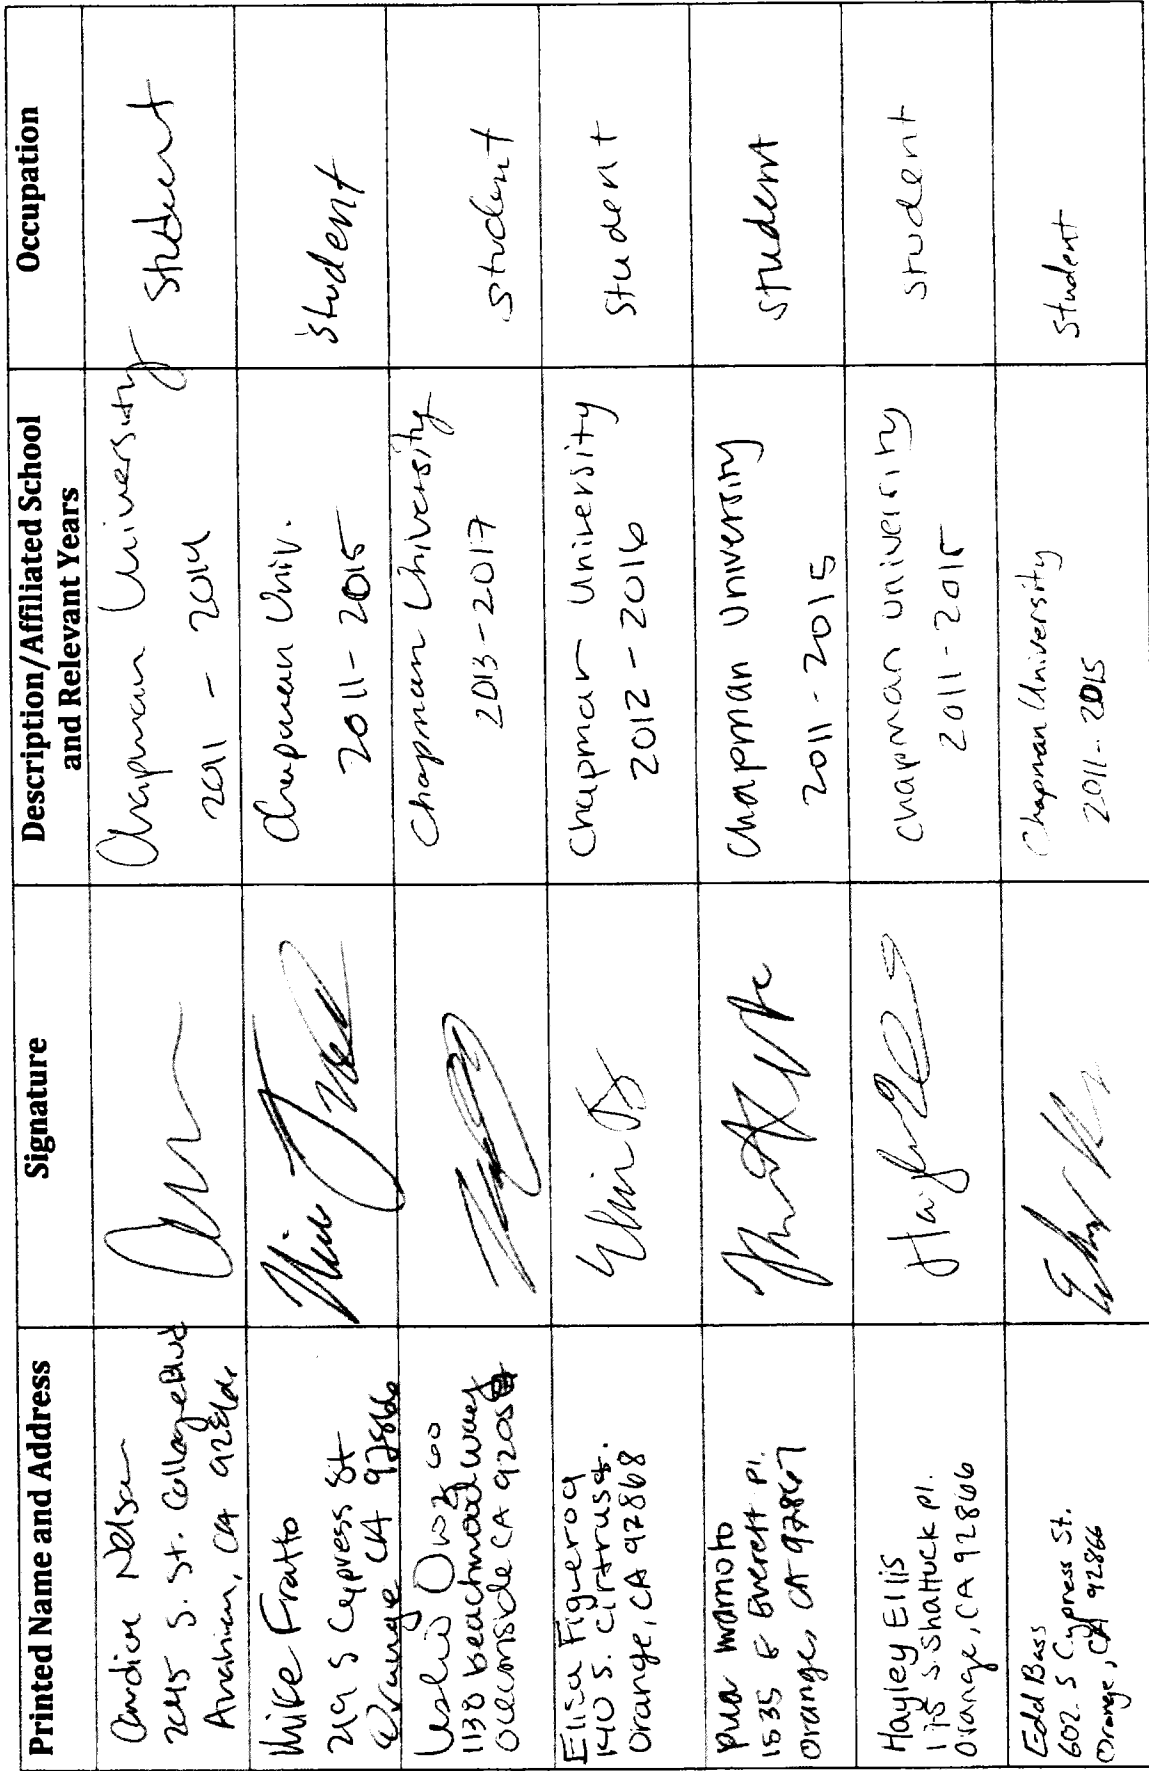 Printed Name and Address
Signature
Description/Affiliated School
and Relevant Years
Occupation
Candice Nelson
2045 S. St. College Blvd
Anaheim, CA
Chapman University
2011 - 2014
Student
Mike Fratto
219 S Cypress St
Orange CA 92866
Chapman Univ.
2011-2015
student
Leslie
1130 beachwood way
Oceanside CA
Chapman University
2013-2017
student
Elisa Figueroa
140 S. Citrus St.
Orange, CA 92868
Chapman University
2012-2016
student
Pua Iwamoto
1535 E Everett Pl.
Orange, CA 92867
Chapman University
2011-2015
student
Hayley Ellis
175 S. Shattuck Pl.
Orange, CA 92866
Chapman University
2011-2015
student
Edd Bass
602 S Cypress St.
Orange, CA 92866
Chapman University
2011-2015
student